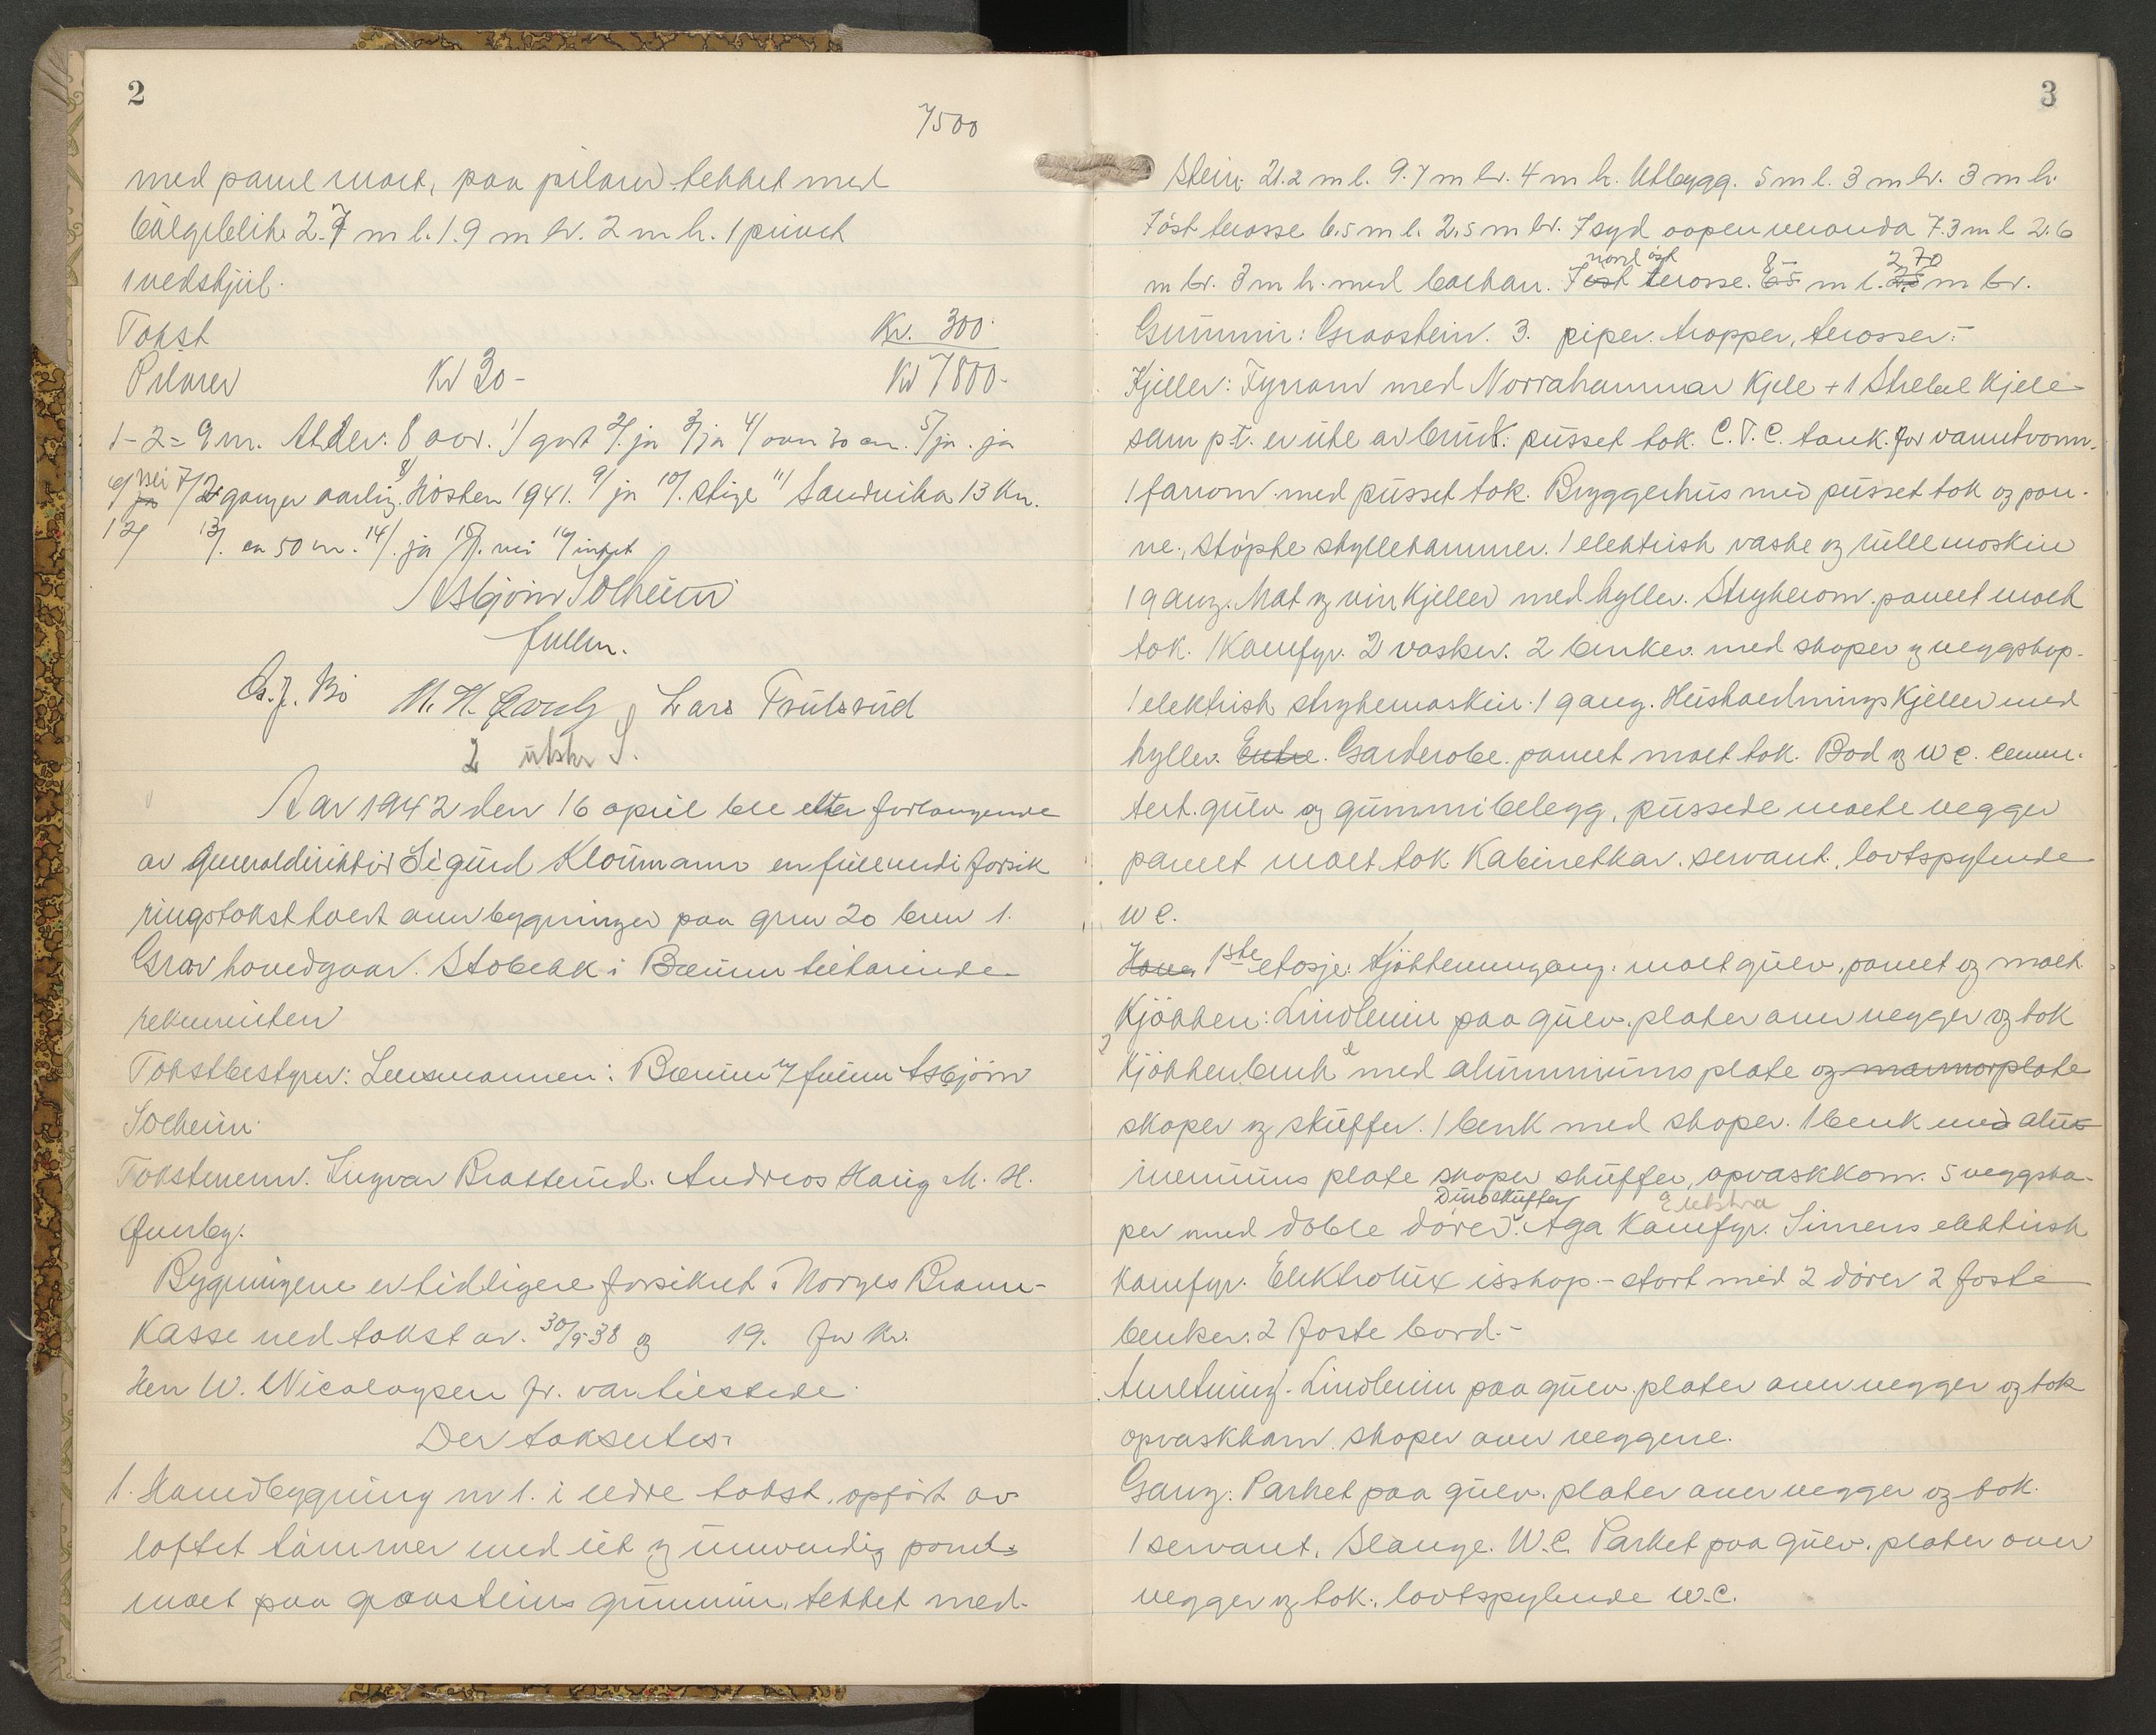 2
7500
med panel malt, paa pilarer tekket med
bölgeblik 2.7 m l. 1.9 m br. 2 m h. 1 privet
1 vedskjul.
Takst Kr. 300.
Pilarer Kr 30- Kr 7800.
1-2 = 9 m. Alder: 8 aar. 1/ godt 2/. ja 3/ ja 4/ over 30 cm. 5/ ja. ja
6/ nei 7/ 2 ganger aarlig. 8/ Hösten 1941. 9/ ja 10/. stige 11/ Sandvika 13 km.
12/ 13/. ca 50 m. 14/. ja 15/. nei 16/ intet
Asbjörn Solheim
fullm.
A. J. Bö M. H. Lars Frülsrud
2 utskr S.
Aar 1942 den 16 april ble etter forlangende
av Generaldirektör Sigurd Kloumann en fullverdi forsik
ringstakst holdt over bygninger paa gnr 20 bnr 1.
Grav hovedgaar. Stabekk i Bærum tilhørende
rekvirenten
Takstbestyrer: Lensmannen i Bærum v/ fullm Asbjörn
Solheim.
Takstmenn. Ingvar Bratterud. Andreas Haug M. H.
Bygningene er tidligere forsikret i Norges Brann-
kasse ved takst av. 30/9-38 og 19. for Kr.
Herr W. Nicolaysen jr. var tilstede.
Der takseres:
1. Hovedbygning nr 1. i eldre takst, opfört av
laftet tömmer med ut og innvendig panel
malt paa graasteins grunnmur, tekket med
3
Stein. 21.2 m l. 9.7 m br. 4 m h. Utbygg. 5 m l. 3 m br. 3 m h.
I öst terasse 6.5 m l. 2.5 m br. I syd aapen veranda 7.3 m l 2.6
m br. 3 m h. med balkan. I öst nord öst terasse. 6.5 8- m l. 2.5 2.70 m br.
Grunnmur: Graastein. 3. piper. trapper, terasser.-
Kjeller: Fyrrom med Norrahammar Kjele + 1 Strebel Kjele
som p.t. er ute av bruk. pusset tak. C.T.C. tank. for varmtvann.
1 farrom med pusset tak. Bryggerhus med pusset tak og pan-
ne., stöpte skyllekammer. 1 elektrisk vaske og rullemaskin
1 gang. Mat og vin Kjeller med hyller. Strykerom. panelt malt
tak. 1 Komfyr. 2 vasker. 2 benker. med skaper og veggskap.
1 elektrisk strykemaskin. 1 gang. HusholdningsKjeller med
hyller. Entre. Garderobe. panelt malt tak. Bod og W C. cemen-
tert. gulv og gummibelegg, pussede malte vegger
panelt malt tak Kabinetkar. servant. lavtspylende
W C.
1ste etasje: Kjökkeninngang. malt gulv. panelt og malt
Kjökken: Linoleum paa gulv. plater over vegger og tak
2 Kjökkenbenk med aluminiums plate og marmorplate
skaper og skuffer. 1 benk med skaper. 1 benk med alu-
meniums plate skaper skuffer, opvaskkom. 5 veggska-
per med doble dörer. Aga Komfyr. Simens elektrisk
Elektra
Komfyr. Elektrolux isskap.- stort med 2 dörer 2 faste
benker. 2 faste bord.-
Anretning. Linoleum paa gulv. plater over vegger og tak
opvaskkom. skaper over veggene.
Gang: Parket paa gulv. plater over vegger og tak.
1 servant. Slange. W.C. Parket paa gulv. plater over
vegger og tak., lavtspylende W.C.